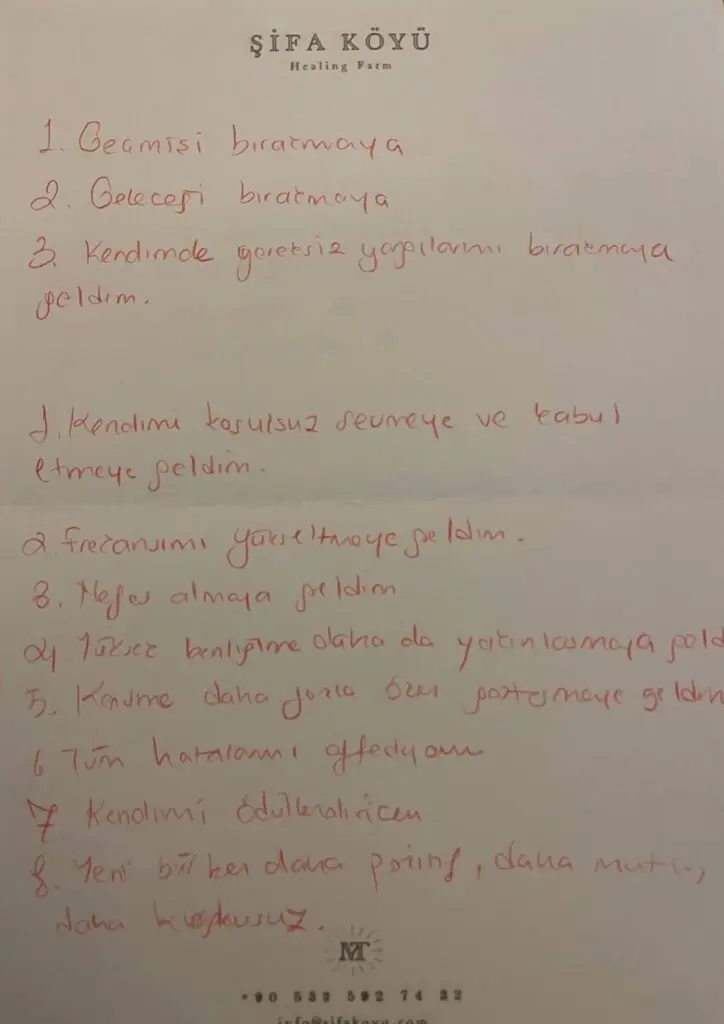 ŞİFA KÖYÜ
Healing Farm
1. Geçmişi bırakmaya
2. Geleceği bırakmaya
3. Kendimde gereksiz yargılarımı bırakmaya
geldim.
1. Kendimi koşulsuz sevmeye ve kabul
etmeye geldim.
2. frekansımı yükseltmeye geldim.
3. Nefes almaya geldim
4 Yüksek benliğime daha da yakınlaşmaya geld
5. Kendime daha fazla özen göstermeye geldim
6 Tüm hatalarımı affediyorum
7 Kendimi ödüllendiricem
8. Yeni bir ben daha pozitif, daha mutlu,
daha kuşkusuz.
MT
+90 532 592 74 32
info@sifakoyu.com